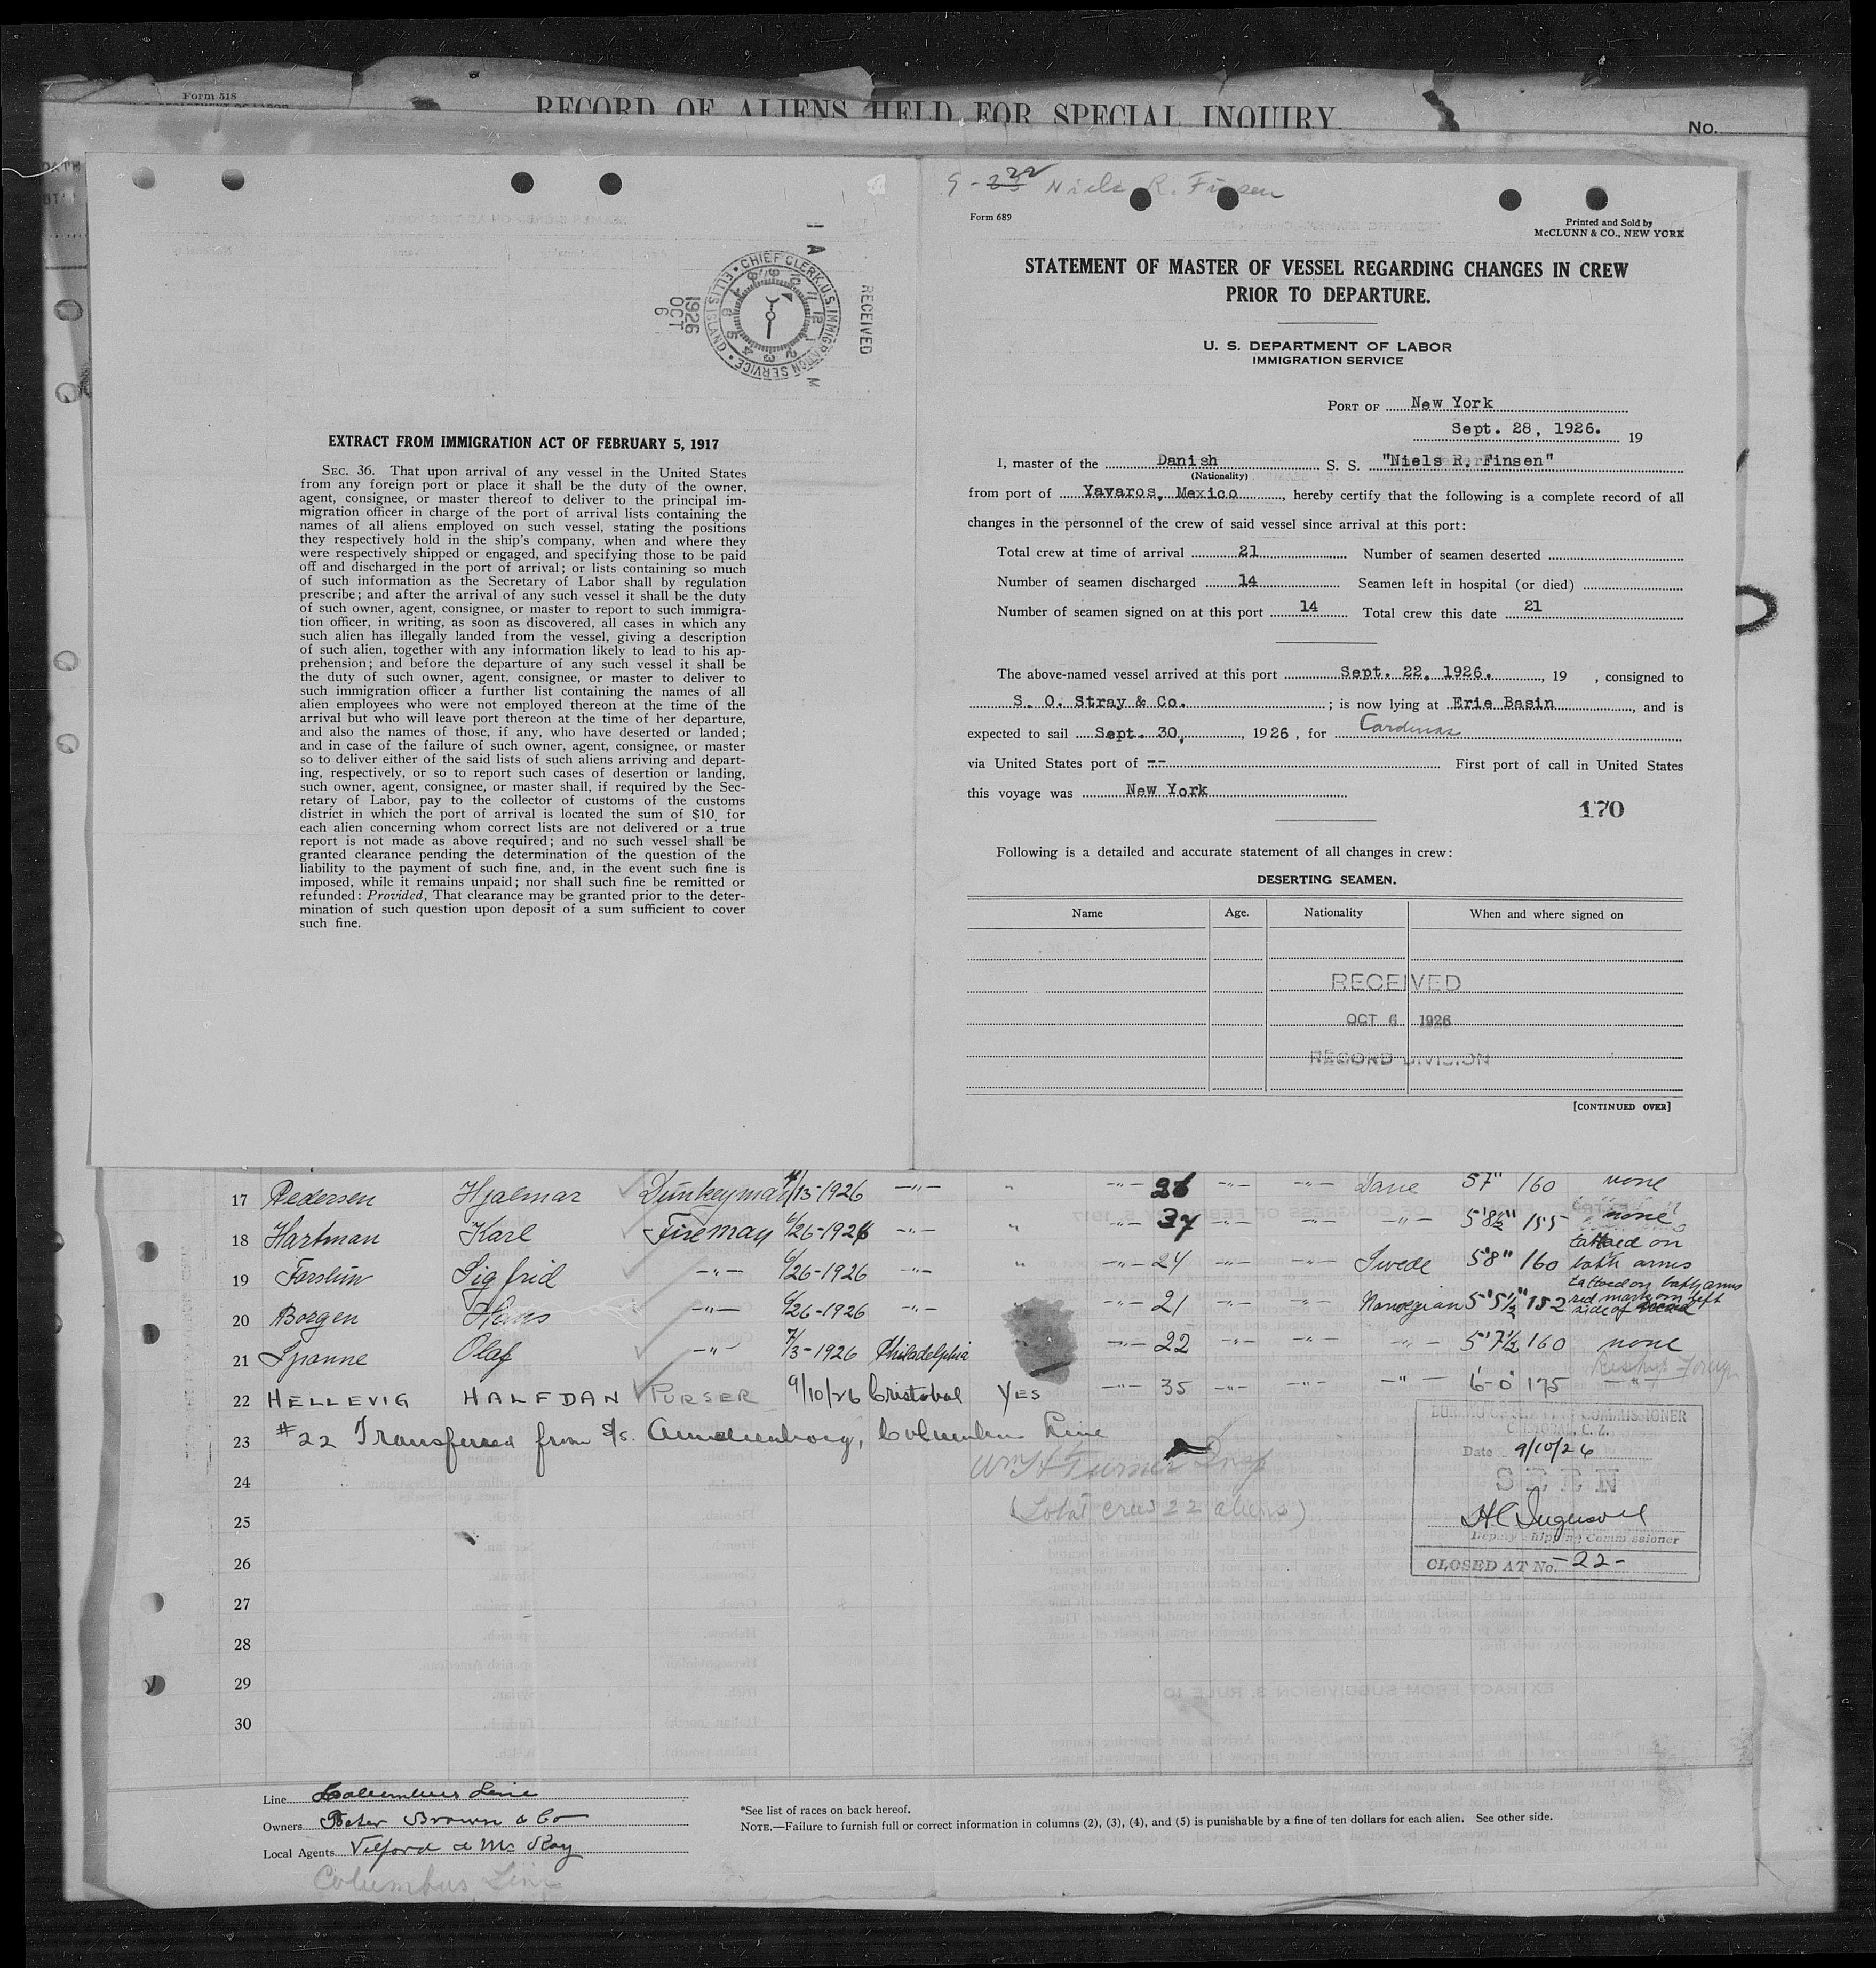 Form 518
RECORD OF ALIENS HELD FOR SPECIAL INQUIRY
No.
RECEIVED
1926
OCT
6
CHIEF CLERK, U.S. IMMIGRATION SERVICE • ELLIS ISLAND •
A M
EXTRACT FROM IMMIGRATION ACT OF FEBRUARY 5, 1917
SEC. 36. That upon arrival of any vessel in the United States
from any foreign port or place it shall be the duty of the owner,
agent, consignee, or master thereof to deliver to the principal im-
migration officer in charge of the port of arrival lists containing the
names of all aliens employed on such vessel, stating the positions
they respectively hold in the ship's company, when and where they
were respectively shipped or engaged, and specifying those to be paid
off and discharged in the port of arrival; or lists containing so much
of such information as the Secretary of Labor shall by regulation
prescribe; and after the arrival of any such vessel it shall be the duty
of such owner, agent, consignee, or master to report to such immigra-
tion officer, in writing, as soon as discovered, all cases in which any
such alien has illegally landed from the vessel, giving a description
of such alien, together with any information likely to lead to his ap-
prehension; and before the departure of any such vessel it shall be
the duty of such owner, agent, consignee, or master to deliver to
such immigration officer a further list containing the names of all
alien employees who were not employed thereon at the time of the
arrival but who will leave port thereon at the time of her departure,
and also the names of those, if any, who have deserted or landed;
and in case of the failure of such owner, agent, consignee, or master
so to deliver either of the said lists of such aliens arriving and depart-
ing, respectively, or so to report such cases of desertion or landing,
such owner, agent, consignee, or master shall, if required by the Sec-
retary of Labor, pay to the collector of customs of the customs
district in which the port of arrival is located the sum of $10 for
each alien concerning whom correct lists are not delivered or a true
report is not made as above required; and no such vessel shall be
granted clearance pending the determination of the question of the
liability to the payment of such fine, and, in the event such fine is
imposed, while it remains unpaid; nor shall such fine be remitted or
refunded: Provided, That clearance may be granted prior to the deter-
mination of such question upon deposit of a sum sufficient to cover
such fine.
Niels R. Finsen
Form 689
Printed and Sold by
McCLUNN & CO., NEW YORK
STATEMENT OF MASTER OF VESSEL REGARDING CHANGES IN CREW
PRIOR TO DEPARTURE.
U. S. DEPARTMENT OF LABOR
IMMIGRATION SERVICE
PORT OF New York
Sept. 28, 1926. 19
I, master of the Danish S. S. "Niels R. Finsen"
(Nationality)
from port of Yavaros, Mexico, hereby certify that the following is a complete record of all
changes in the personnel of the crew of said vessel since arrival at this port:
Total crew at time of arrival 21 Number of seamen deserted
Number of seamen discharged 14 Seamen left in hospital (or died)
Number of seamen signed on at this port 14 Total crew this date 21
The above-named vessel arrived at this port Sept. 22, 1926., 19 , consigned to
S. O. Stray & Co. ; is now lying at Erie Basin, and is
expected to sail Sept. 30, , 1926, for Cardenas
via United States port of -- First port of call in United States
this voyage was New York
170
Following is a detailed and accurate statement of all changes in crew:
DESERTING SEAMEN.
Name Age. Nationality When and where signed on
RECEIVED
OCT 6 1926
RECORD DIVISION
[CONTINUED OVER]
17 Pedersen Hjalmar Dunkeyman 4/13-1926 -"- " -"- 26 -"- -"- Dane 5'7" 160 none
18 Hartman Karl Fireman 6/26-1926 -"- " -"- 37 -"- -"- -"- 5'8½" 155 none
19 Sigfrid -"- 6/26-1926 -"- " -"- 24 -"- -"- Swede 5'8" 160 tattoed on both arms
20 Borgen Hans -"- 6/26-1926 -"- -"- 21 -"- -"- Norwegian 5'5½" 152 tattoed on both arms red mark on left side of
21 Spanne Olaf -"- 7/3-1926 Philadelphia -"- 22 -"- -"- -"- 5'7½ 160 none
22 HELLEVIG HALFDAN PURSER 9/10/26 Cristobal YES -"- 35 -"- -"- -"- 6-0 175 -"-
23 #22 Transferred from S/s. Columbus Line
24 Wm H Turner Insp
25 (Total crew 22 aliens)
26
27
28
29
30
SHIPPING COMMISSIONER
CRISTOBAL, C. Z.
Date 9/10/26
SEEN
Deputy Shipping Commissioner
CLOSED AT No. -22-
Line Columbus Line
Owners Peter Brown & Co
Local Agents Velford & McKay
Columbus Line
*See list of races on back hereof.
NOTE.—Failure to furnish full or correct information in columns (2), (3), (4), and (5) is punishable by a fine of ten dollars for each alien. See other side.